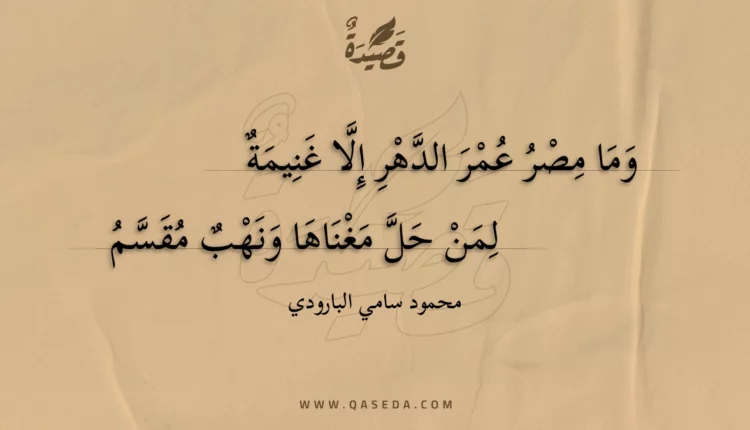 قَصِيدَةٌ
وَمَا مِصْرُ عُمْرَ الدَّهْرِ إِلَّا غَنِيمَةٌ
لِمَنْ حَلَّ مَغْنَاهَا وَنَهْبٌ مُقَسَّمُ
محمود سامي البارودي
WWW.QASEDA.COM